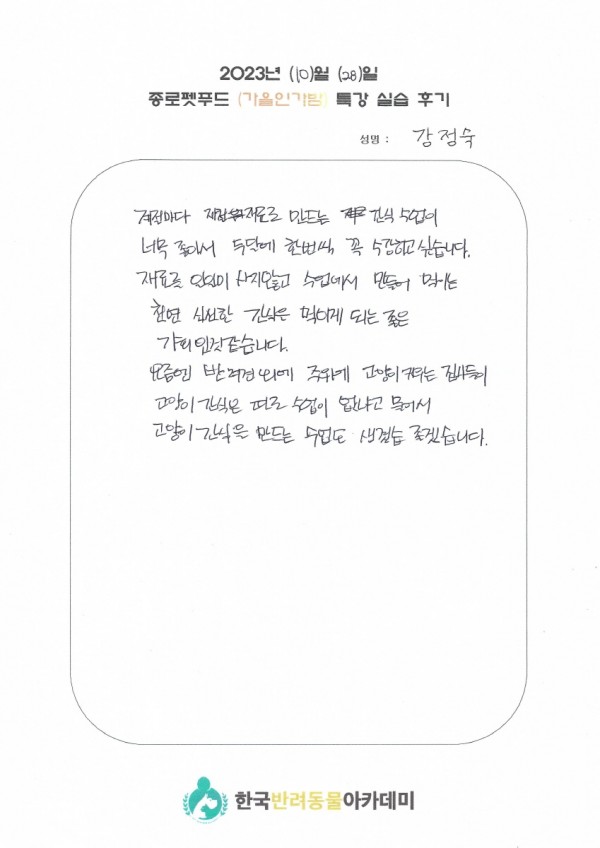 2023년 (10)월 (28)일
종로펫푸드 (가을인기템) 특강 실습 후기
성명 : 강정숙
계절마다 제철 재료로 만드는 간식 수업이
너무 좋아서 두달에 한번씩 꼭 수강하고 싶습니다.
재료를 일일이 사지않고 수업에서 만들어 먹이는
천연 신선한 간식은 먹이게 되는 좋은
기회인것 같습니다.
요즘엔 반려견 외에 주위에 고양이 키우는 집사들이
고양이 간식은 따로 수업이 없냐고 물어서
고양이 간식을 만드는 수업도 생겼음 좋겠습니다.
한국반려동물아카데미